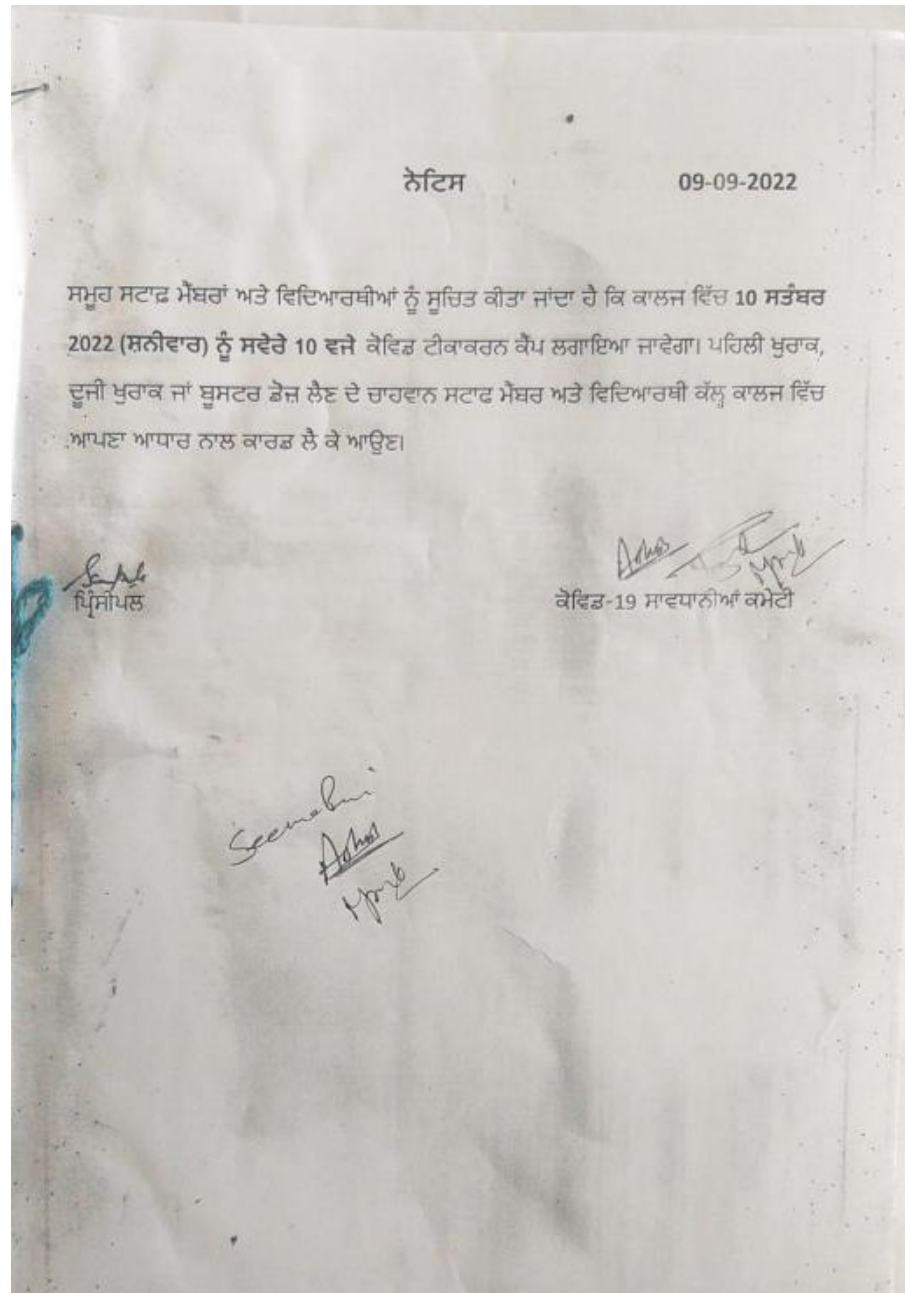 ਨੋਟਿਸ 09-09-2022
ਸਮੂਹ ਸਟਾਫ਼ ਮੈਂਬਰਾਂ ਅਤੇ ਵਿਦਿਆਰਥੀਆਂ ਨੂੰ ਸੂਚਿਤ ਕੀਤਾ ਜਾਂਦਾ ਹੈ ਕਿ ਕਾਲਜ ਵਿੱਚ 10 ਸਤੰਬਰ
2022 (ਸ਼ਨੀਵਾਰ) ਨੂੰ ਸਵੇਰੇ 10 ਵਜੇ ਕੋਵਿਡ ਟੀਕਾਕਰਨ ਕੈਂਪ ਲਗਾਇਆ ਜਾਵੇਗਾ। ਪਹਿਲੀ ਖੁਰਾਕ,
ਦੂਜੀ ਖੁਰਾਕ ਜਾਂ ਬੂਸਟਰ ਡੋਜ਼ ਲੈਣ ਦੇ ਚਾਹਵਾਨ ਸਟਾਫ ਮੈਂਬਰ ਅਤੇ ਵਿਦਿਆਰਥੀ ਕੱਲ੍ਹ ਕਾਲਜ ਵਿੱਚ
ਆਪਣਾ ਆਧਾਰ ਨਾਲ ਕਾਰਡ ਲੈ ਕੇ ਆਉਣ।
ਪ੍ਰਿੰਸੀਪਲ ਕੋਵਿਡ-19 ਸਾਵਧਾਨੀਆਂ ਕਮੇਟੀ